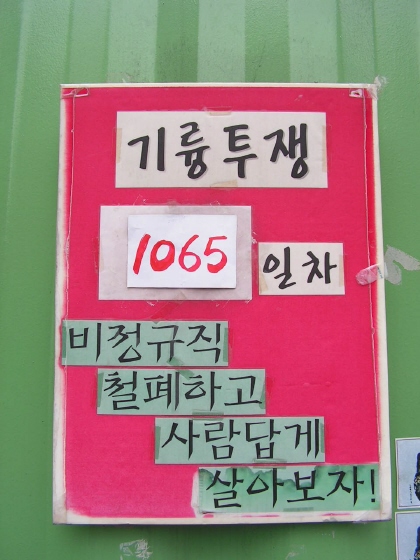 기륭투쟁
1065 일차
비정규직
철폐하고
사람답게
살아보자!